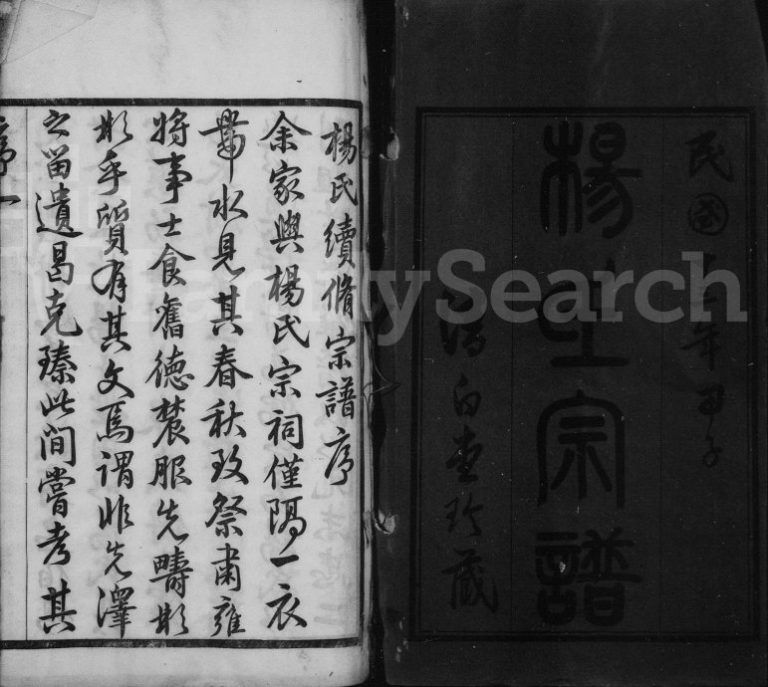 民國十三年甲子
楊氏宗譜
清白堂珍藏
楊氏續脩宗譜序
余家與楊氏宗祠僅隔一衣
帶水見其春秋致祭肅雍
將事士食舊德農服先疇彬
彬乎質有其文焉謂非先澤
之留遺曷克臻此間嘗考其
序一
FamilySearch